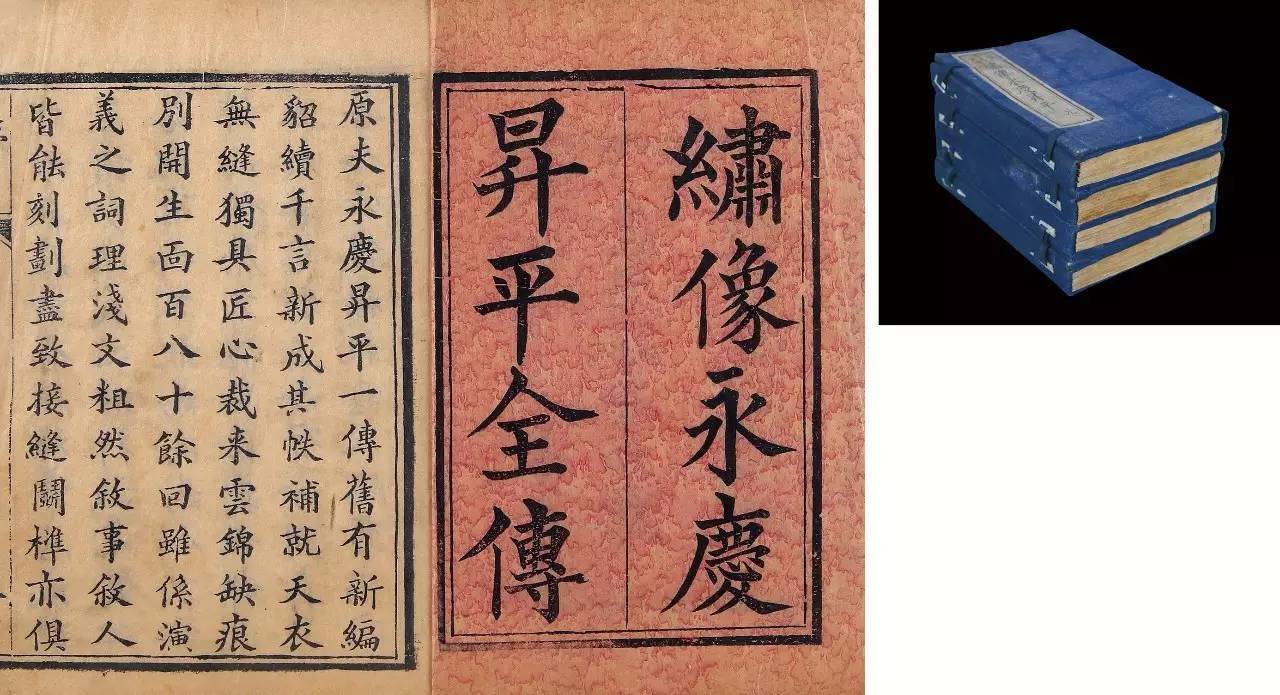 繡像永慶
昇平全傳
原夫永慶昇平一傳舊有新編
貂續千言新成其帙補就天衣
無縫獨具匠心裁来雲錦缺痕
別開生面百八十餘回雖係演
義之詞理淺文粗然敘事敘人
皆能刻劃盡致接縫鬬榫亦俱